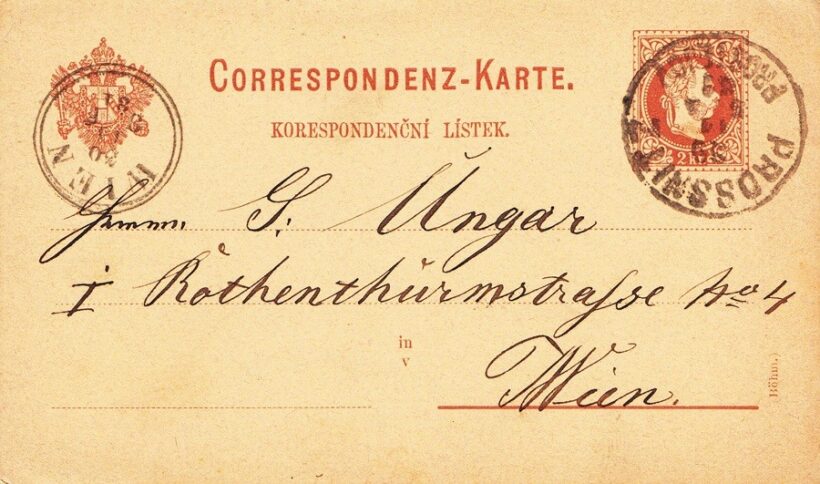 CORRESPONDENZ-KARTE.
KORESPONDENČNÍ LÍSTEK.
WIEN
PROSSNITZ
2 kr.
Herrn S. Ungar
I Rothenthürmstrasse No 4
in
v
Wien.
(Böhm.)